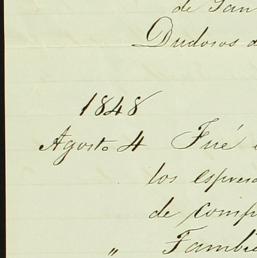 de San
Dudosos
1848
Agosto 4 Fué
los espres
de comp
" Tambie